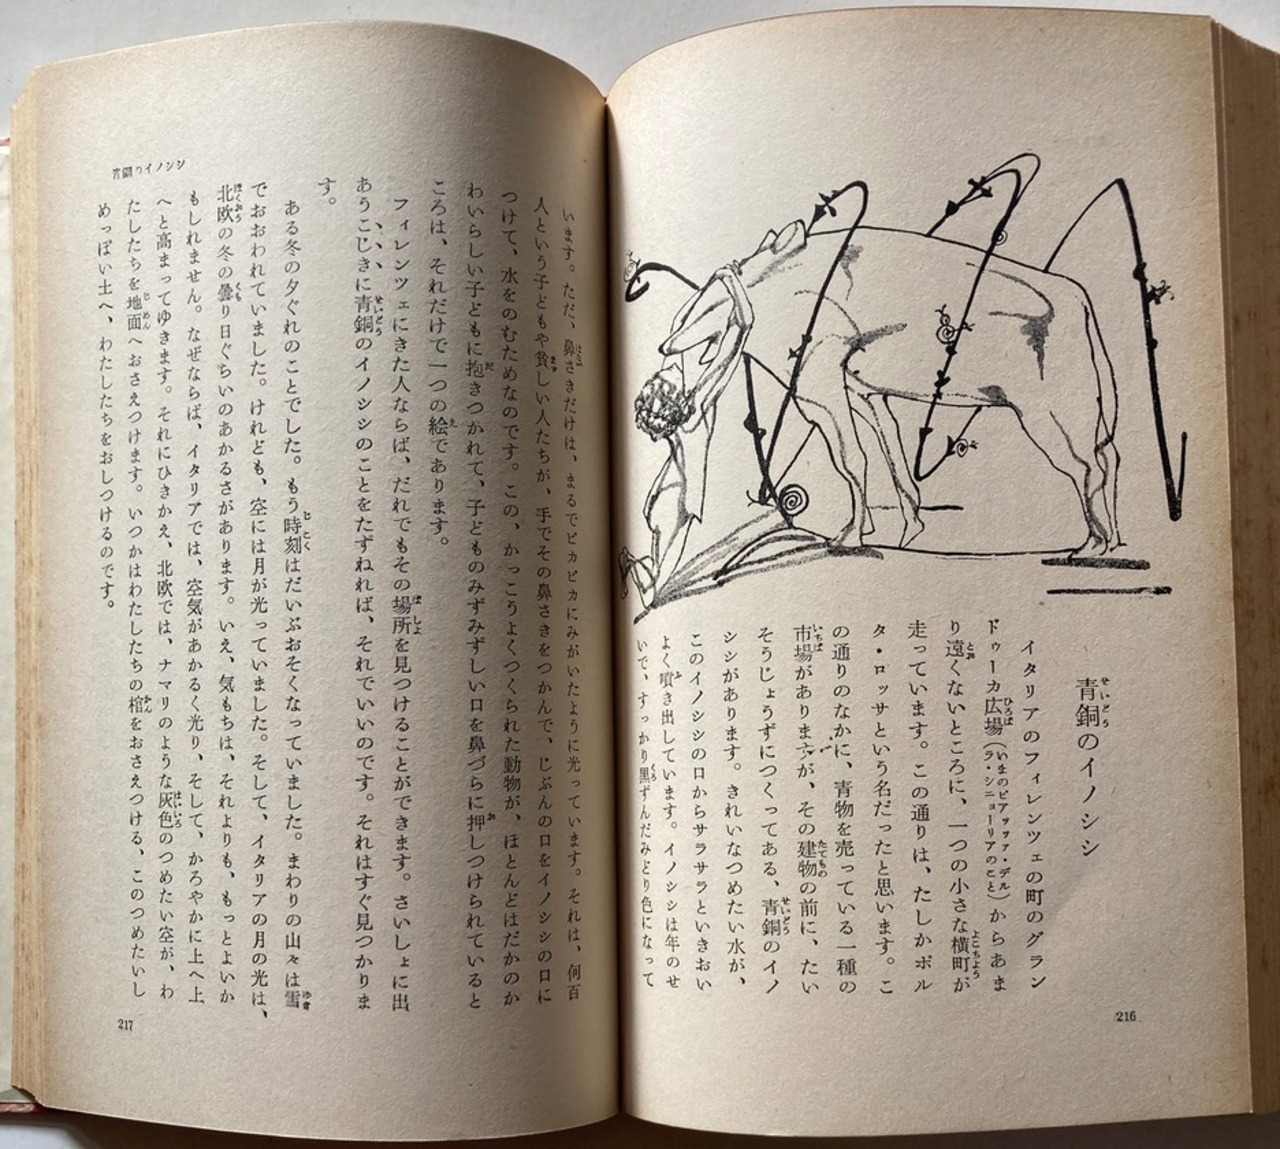 青銅のイノシシ
イタリアのフィレンツェの町のグラン
ドゥーカ広場（いまのピアッツァ・デル
ラ・シニョーリアのこと）からあま
り遠くないところに、一つの小さな横町が
走っています。この通りは、たしかポル
タ・ロッサという名だったと思います。こ
の通りのなかに、青物を売っている一種の
市場がありますが、その建物の前に、たい
そうじょうずにつくってある、青銅のイノ
シシがあります。きれいなつめたい水が、
このイノシシの口からサラサラといきおい
よく噴き出しています。イノシシは年のせ
いで、すっかり黒ずんだみどり色になって
216
います。ただ、鼻さきだけは、まるでピカピカにみがいたように光っています。それは、何百
人という子どもや貧しい人たちが、手でその鼻さきをつかんで、じぶんの口をイノシシの口に
つけて、水をのむためなのです。この、かっこうよくつくられた動物が、ほとんどはだかのか
わいらしい子どもに抱きつかれて、子どものみずみずしい口を鼻づらに押しつけられていると
ころは、それだけで一つの絵であります。
フィレンツェにきた人ならば、だれでもその場所を見つけることができます。さいしょに出
あうこじきに青銅のイノシシのことをたずねれば、それでいいのです。それはすぐ見つかりま
す。
ある冬の夕ぐれのことでした。もう時刻はだいぶおそくなっていました。まわりの山々は雪
でおおわれていました。けれども、空には月が光っていました。そして、イタリアの月の光は、
北欧の冬の曇り日ぐらいのあかるさがあります。いえ、気もちは、それよりも、もっとよいか
もしれません。なぜならば、イタリアでは、空気があかるく光り、そして、かろやかに上へ上
へと高まってゆきます。それにひきかえ、北欧では、ナマリのような灰色のつめたい空が、わ
たしたちを地面へおさえつけます。いつかはわたしたちの棺をおさえつける、このつめたいし
めっぽい土へ、わたしたちをおしつけるのです。
青銅のイノシシ
217